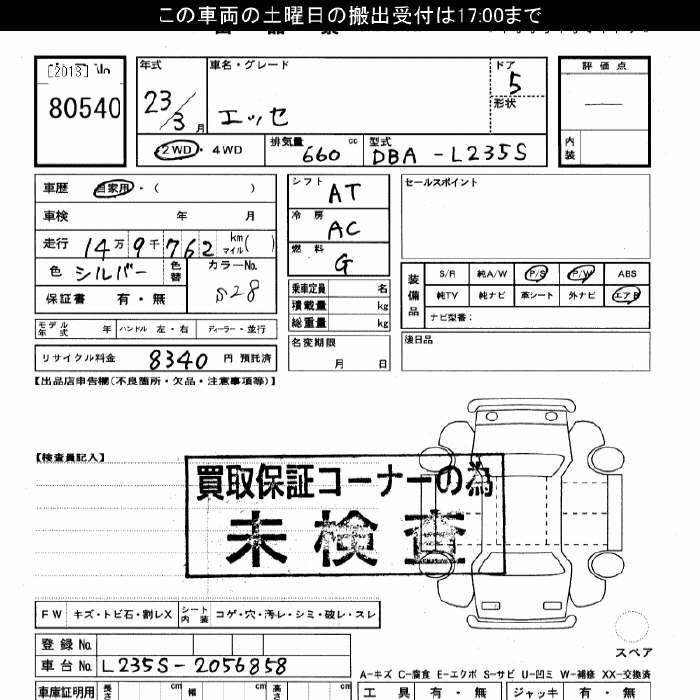 この車両の土曜日の搬出受付は17:00まで
[2013]
80540
年式
23/3 月
車名・グレード
エッセ
ドア
5
形状
評価点
―
内装
2WD・4WD
排気量 660 cc
型式 DBA-L235S
車歴 自家用・( )
車検 年 月
走行 14万9千762 km マイル( )
色 シルバー 色替
カラーNo. S28
保証書 有・無
シフト AT
冷房 AC
燃料 G
乗車定員 名
積載量 kg
総重量 kg
セールスポイント
装備品
S/R 純A/W P/S P/W ABS
純TV 純ナビ 革シート 外ナビ エアB
ナビ型番:
モデル年式 年 ハンドル 左・右 ディーラー・並行
リサイクル料金 8340 円 預託済
名変期限 月 日
後日品
【出品店申告欄(不良箇所・欠品・注意事項等)】
【検査員記入】
買取保証コーナーの為
未検査
FW キズ・トビ石・割レX シート内装 コゲ・穴・汚レ・シミ・破レ・スレ
スペア
登録No.
車台No. L235S-2056858
A-キズ C-腐食 E-エクボ S-サビ U-凹ミ W-補修 XX-交換済
車庫証明用 長さ cm 幅 cm 高さ cm
工具 有・無 ジャッキ 有・無